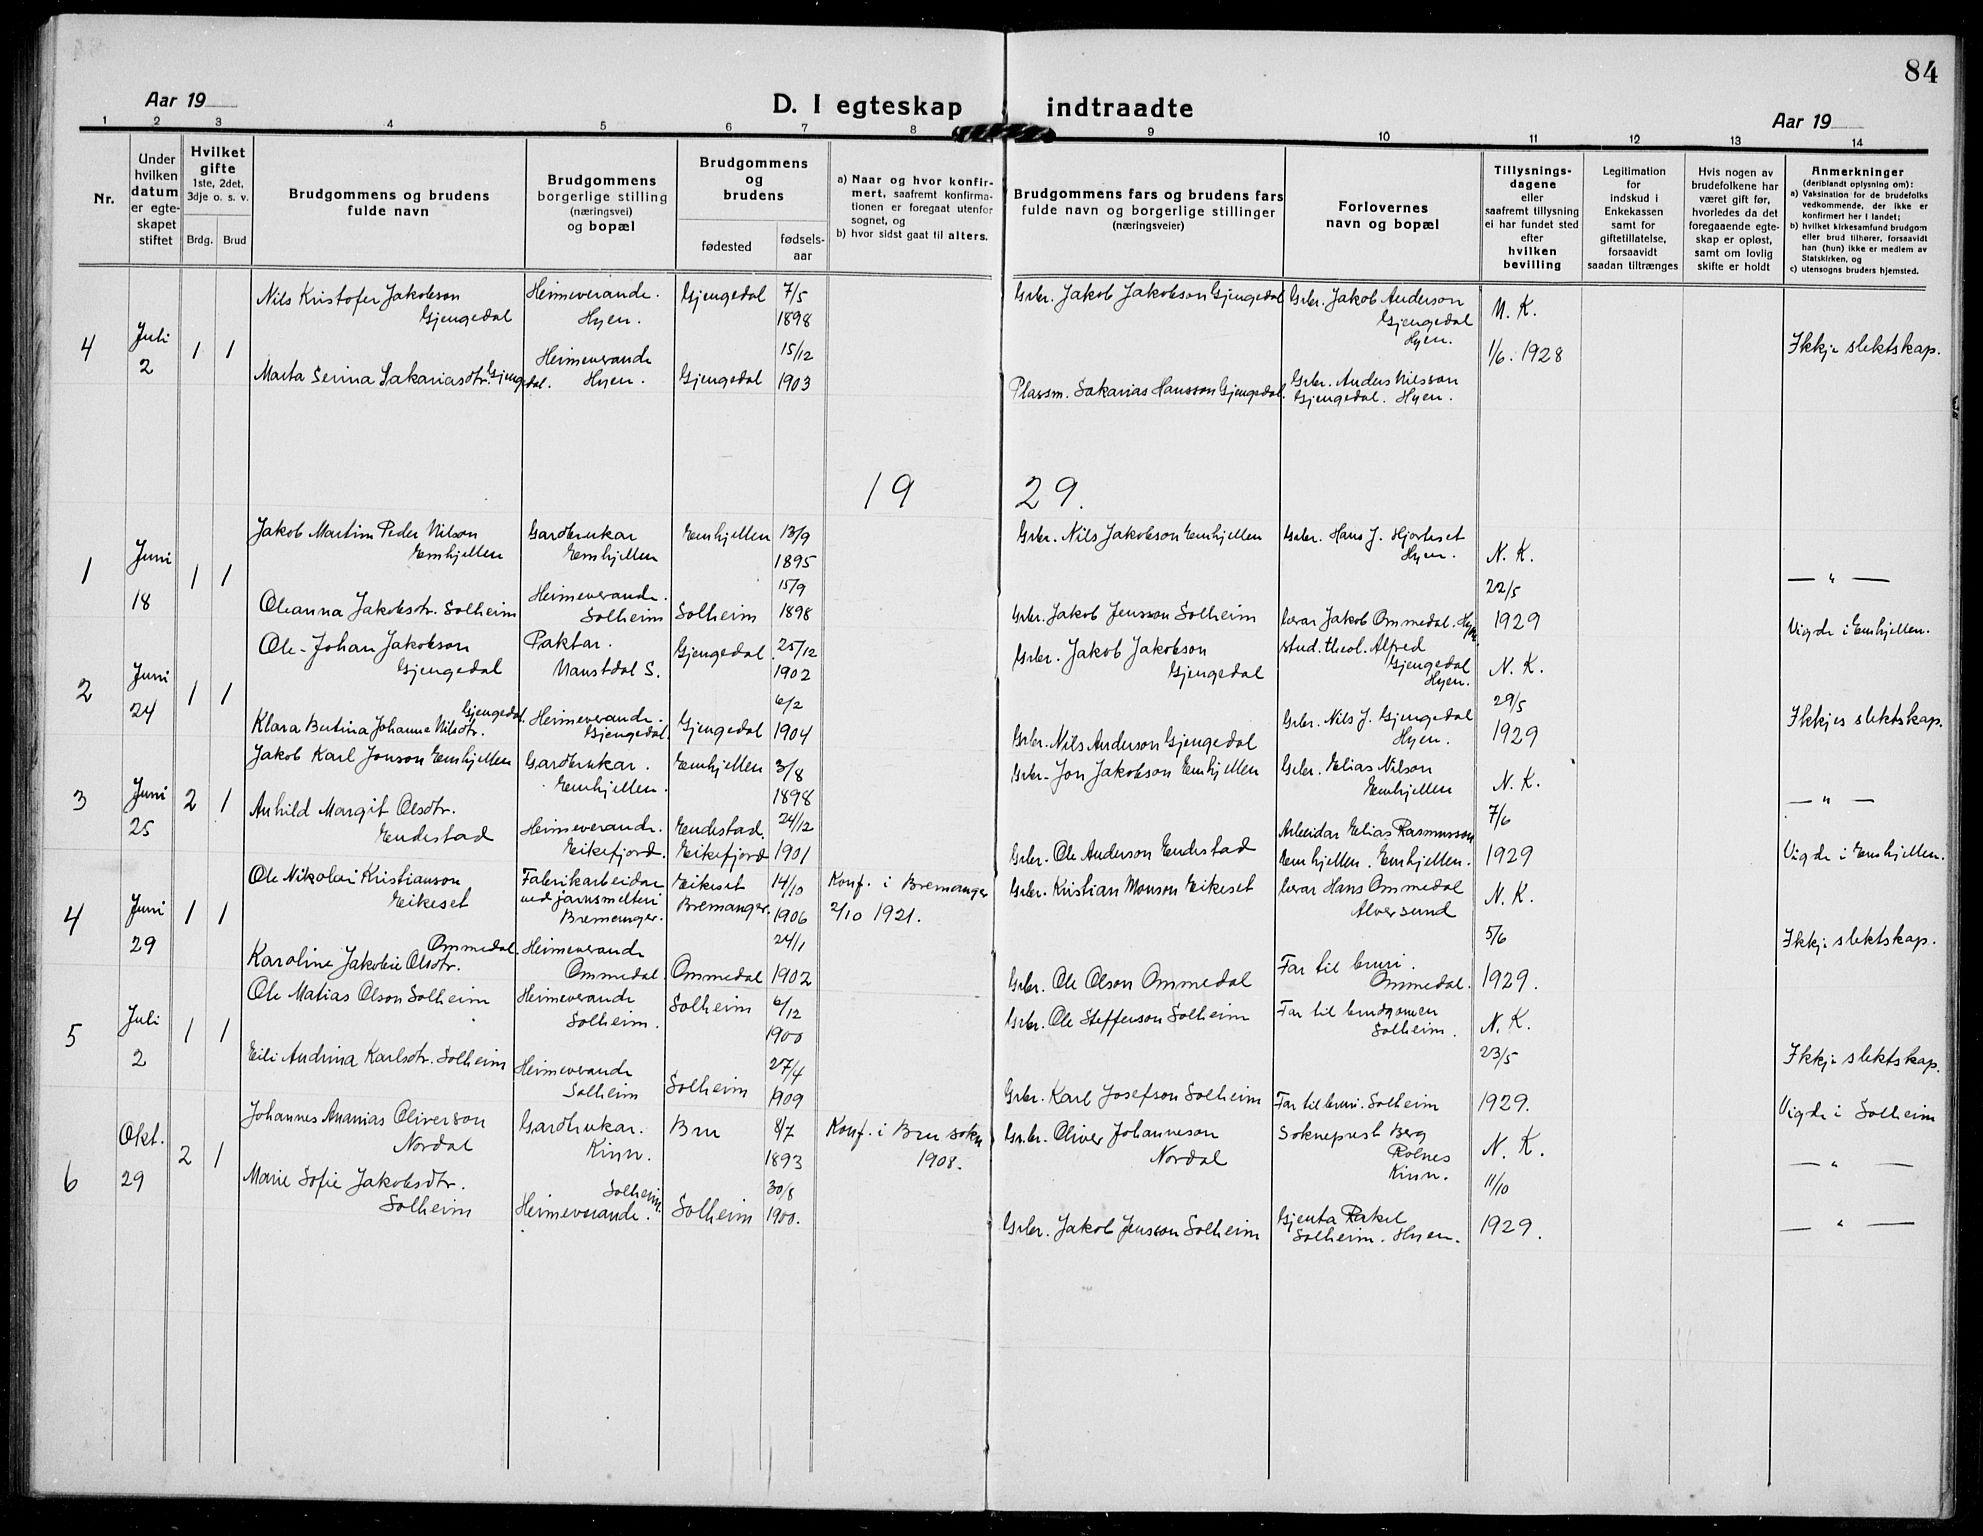 84
Aar 19
D. I egteskap indtraadte
Aar 19
1 2 3 4 5 6 7 8 9 10 11 12 13 14
Nr.
Under hvilken datum er egteskapet stiftet
Hvilket gifte
1ste, 2det, 3dje o. s. v.
Brdg. Brud
Brudgommens og brudens fulde navn
Brudgommens borgerlige stilling (næringsvei) og bopæl
Brudgommens og brudens
fødested
fødselsaar
a) Naar og hvor konfirmert, saafremt konfirmationen er foregaat utenfor sognet, og
b) hvor sidst gaat til alters.
Brudgommens fars og brudens fars fulde navn og borgerlige stillinger (næringsveier)
Forlovernes navn og bopæl
Tillysningsdagene eller saafremt tillysning ei har fundet sted efter hvilken bevilling
Legitimation for indskud i Enkekassen samt for giftetillatelse, forsaavidt saadan tiltrænges
Hvis nogen av brudefolkene har været gift før, hvorledes da det foregaaende egteskap er opløst, samt om lovlig skifte er holdt
Anmerkninger (deriblandt oplysning om):
a) Vaksination for de brudefolks vedkommende, der ikke er konfirmert her i landet;
b) hvilket kirkesamfund brudgom eller brud tilhører, forsaavidt han (hun) ikke er medlem av Statskirken, og
c) utensogns bruders hjemsted.
4 Juli 2 1 1
Nils Kristofer Jakobson Gjengedal
Heimeverande. Hyen.
Gjengedal 7/5 1898
Grbr. Jakob Jakobson Gjengedal
Grbr. Jakob Anderson Gjengedal Hyen.
N. K. 1/6. 1928
Ikkje slektskap.
Marta Serina Sakariasdtr. Gjengedal.
Heimeverande Hyen.
Gjengedal 15/12 1903
Plassm. Sakarias Hansson Gjengedal.
Grbr. Anders Nilsson Gjengedal. Hyen.
19 29.
1 Juni 18 1 1
Jakob Martin Peder Nilson Emhjellen
Gardbrukar Emhjellen
Emhjellen 13/9 1895
Grbr. Nils Jakobson Emhjellen
Grbr. Hans J. Hjorteset Hyen.
N. K. 22/5 1929
— " —
Oleanna Jakobsdtr. Solheim
Heimeverande. Solheim
Solheim 15/9 1898
Grbr. Jakob Jensson Solheim
lærar Jakob Ommedal. Hyen.
Vigde i Emhjellen.
2 Juni 24 1 1
Ole-Johan Jakobson Gjengedal
Paktar. Naustdal S.
Gjengedal 25/12 1902
Grbr. Jakob Jakobson Gjengedal
stud. theol. Alfred Gjengedal Hyen.
N. K. 29/5 1929
Ikkjes slektskap.
Klara Bertina Johanne Nilsdtr. Gjengedal.
Heimeverande. Gjengedal.
Gjengedal 6/2 1904
Grbr. Nils Anderson Gjengedal
Grbr. Nils J. Gjengedal Hyen.
3 Juni 25 2 1
Jakob Karl Jonson Emhjellen
Gardbrukar. Emhjellen.
Emhjellen 3/8 1898
Grbr. Jon Jakobson Emhjellen
Grbr. Elias Nilson Emhjellen
N. K. 7/6 1929
— " —
Anhild Margit Olsdtr. Endestad
Heimeverande. Eikefjord.
Endestad. Eikefjord 24/12 1901
Grbr. Ole Anderson Endestad
Arbeidar Elias Rasmusson Emhjellen. Emhjellen.
Vigde i Emhjellen.
4 Juni 29 1 1
Ole Nikolai Kristianson Eikeset
Fabrikarbeidar ved jarnsmelteri Bremanger.
Eikeset Bremanger. 14/10 1906
Konf. i Bremanger 2/10 1921.
Grbr. Kristian Monson Eikeset
lærar Hans Ommedal Alversund
N. K. 5/6 1929.
Ikkje slektskap.
Karoline Jakobie Olsdtr. Ommedal.
Heimeverande Ommedal.
Ommedal 24/1 1902
Grbr. Ole Olson Ommedal
Far til bruri. Ommedal.
5 Juli 2 1 1
Ole Matias Olson Solheim
Heimeverande Solheim.
Solheim 6/12 1900
Grbr. Ole Steffenson Solheim
Far til brudgomen Solheim.
N. K. 23/5 1929.
Ikkje slektskap.
Eili Andrina Karlsdtr. Solheim
Heimeverande Solheim
Solheim 27/4 1909
Grbr. Karl Josefson Solheim
Far til bruri. Solheim
Vigde i Solheim
6 Okt. 29 2 1
Johannes Ananias Oliverson Nordal
Gardbrukar. Kinn.
Bru 8/7 1893
Konf. i Bru sokn 1908.
Grbr. Oliver Johanneson Nordal
Sokneprest Berg Rolnes Kinn.
N. K. 11/10 1929.
— " —
Marie Sofie Jakobsdtr. Solheim
Solheim. Heimeverande.
Solheim 30/8 1900.
Grbr. Jakob Jensson Solheim
Gjenta Rakel Solheim. Hyen.
— " —